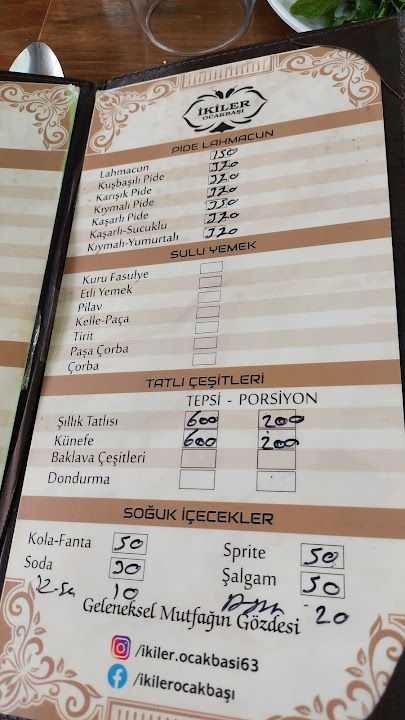 İKİLER
OCAKBAŞI
PİDE LAHMACUN
Lahmacun 150
Kuşbaşılı Pide 170
Karışık Pide 170
Kıymalı Pide 170
Kaşarlı Pide 150
Kaşarlı-Sucuklu 170
Kıymalı-Yumurtalı 170
SULU YEMEK
Kuru Fasulye
Etli Yemek
Pilav
Kelle-Paça
Tirit
Paşa Çorba
Çorba
TATLI ÇEŞİTLERİ
TEPSİ - PORSİYON
Şıllık Tatlısı 600 200
Künefe 600 200
Baklava Çeşitleri
Dondurma
SOĞUK İÇECEKLER
Kola-Fanta 50 Sprite 50
Soda 30 Şalgam 50
10 20
Geleneksel Mutfağın Gözdesi
/ikiler.ocakbasi63
/ikilerocakbaşı